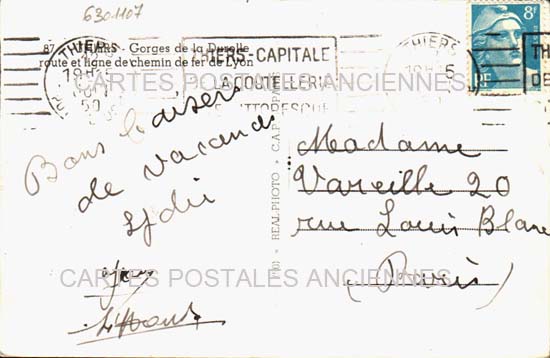 6301107
87 - THIERS - Gorges de la Durolle
route et ligne de chemin de fer de Lyon
THIERS
THIERS-CAPITALE
COUTELLERIE
PITTORESQUE
THIERS
8F
CARTES POSTALES ANCIENNES
Bons baisers
de vacances
REAL PHOTO
C.A.P.
Madame
Vareille 20
rue Louis Blanc
(Paris)
CARTES POSTALES ANCIENNES